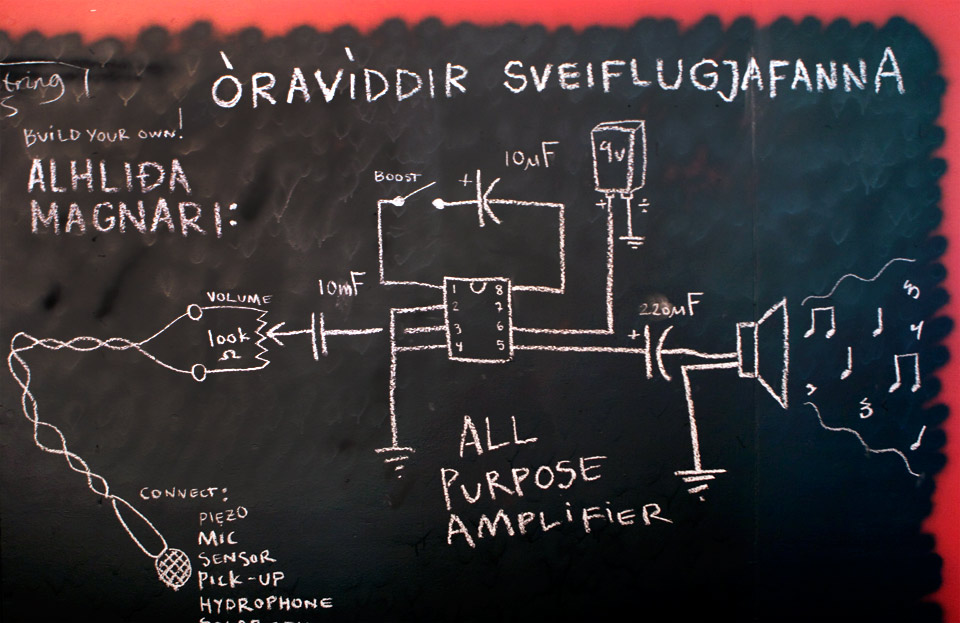 ÒRAVÌDDIR SVEIFLUGJAFANNA
tring 1
S
BUILD YOUR OWN!
ALHLIÐA
MAGNARI:
BOOST
+
10µF
9v
+ ÷
VOLUME
100k
Ω
10mF
1 8
2 7
3 6
4 5
+
220µF
ALL
PURPOSE
AMPLIFIER
CONNECT:
PIEZO
MIC
SENSOR
PICK-UP
HYDROPHONE